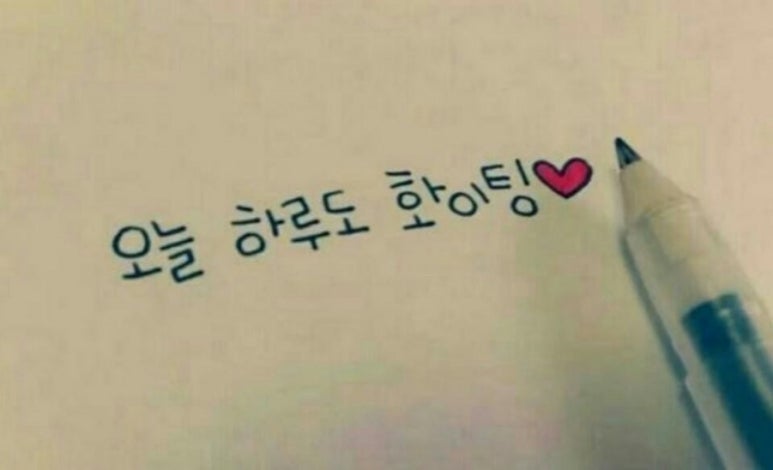 오늘 하루도 화이팅♥